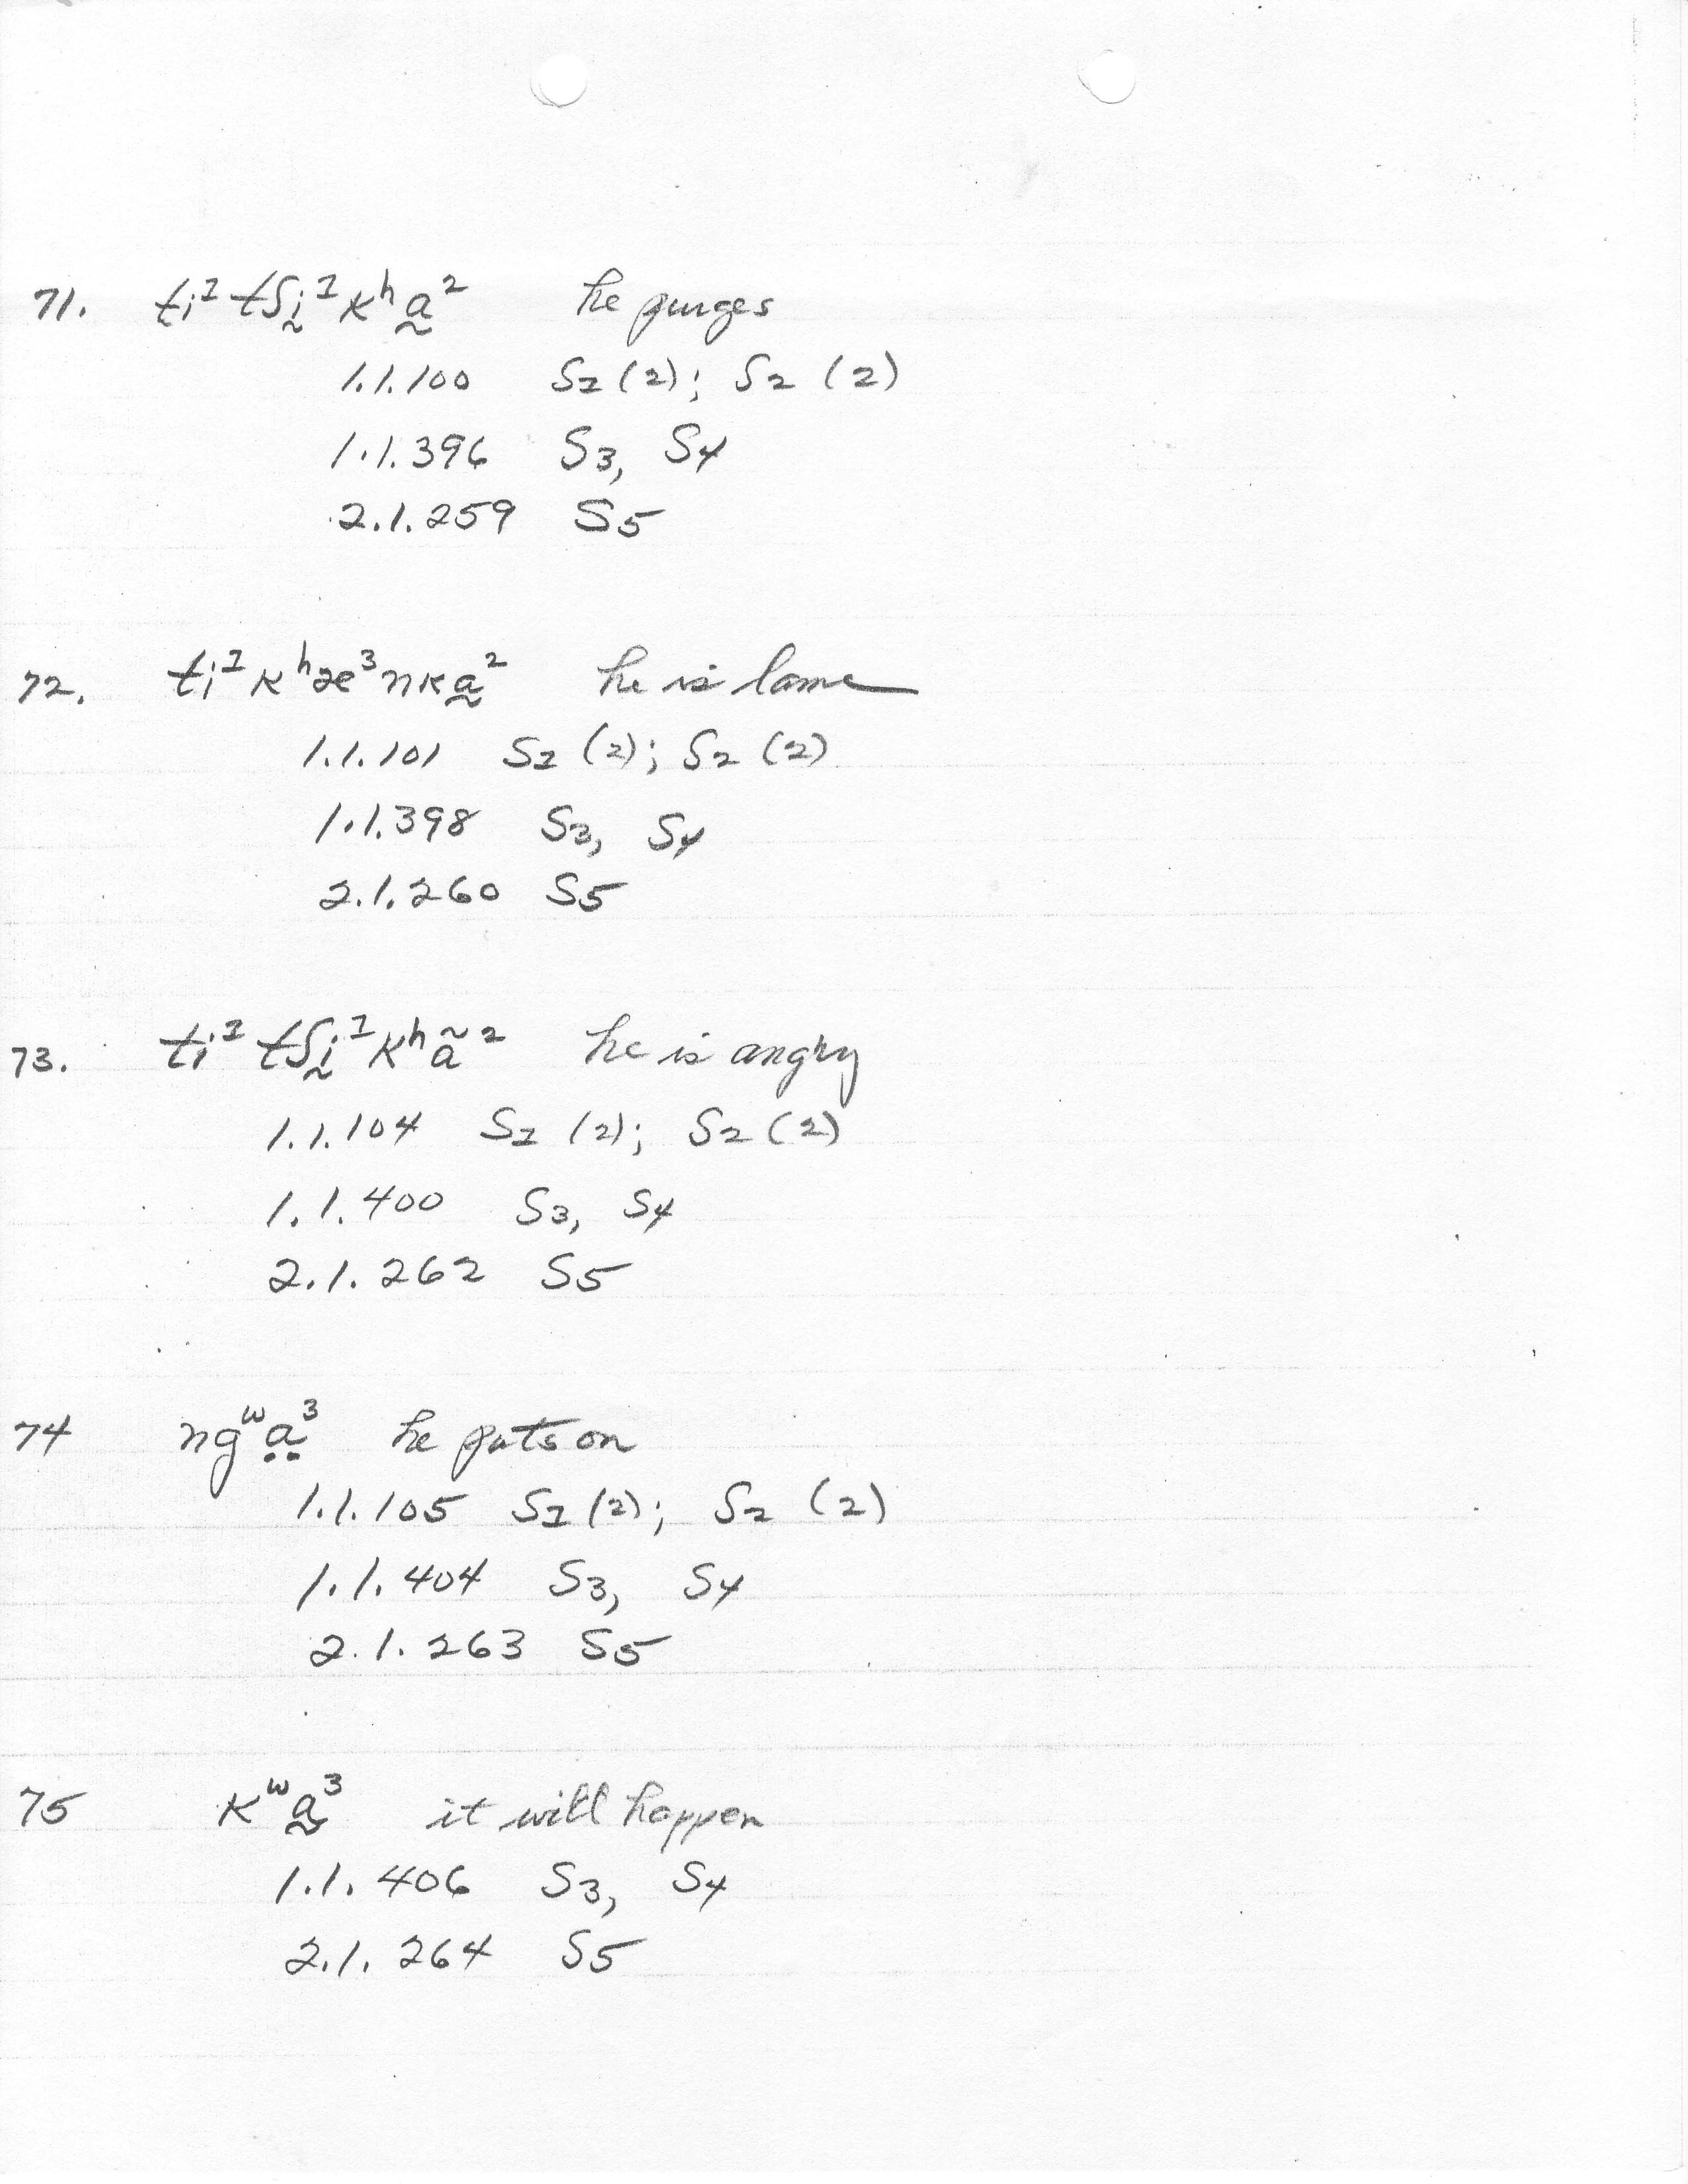 71. ti¹tʃḭ¹kʰa̰² he purges
1.1.100 S1 (2); S2 (2)
1.1.396 S3, S4
2.1.259 S5
72. ti¹kʰæ³nka̰² he is lame
1.1.101 S1 (2); S2 (2)
1.1.398 S3, S4
2.1.260 S5
73. ti¹tʃḭ¹kʰã² he is angry
1.1.104 S1 (2); S2 (2)
1.1.400 S3, S4
2.1.262 S5
74 ngʷa̤³ he puts on
1.1.105 S1 (2); S2 (2)
1.1.404 S3, S4
2.1.263 S5
75 kʷa̰³ it will happen
1.1.406 S3, S4
2.1.264 S5